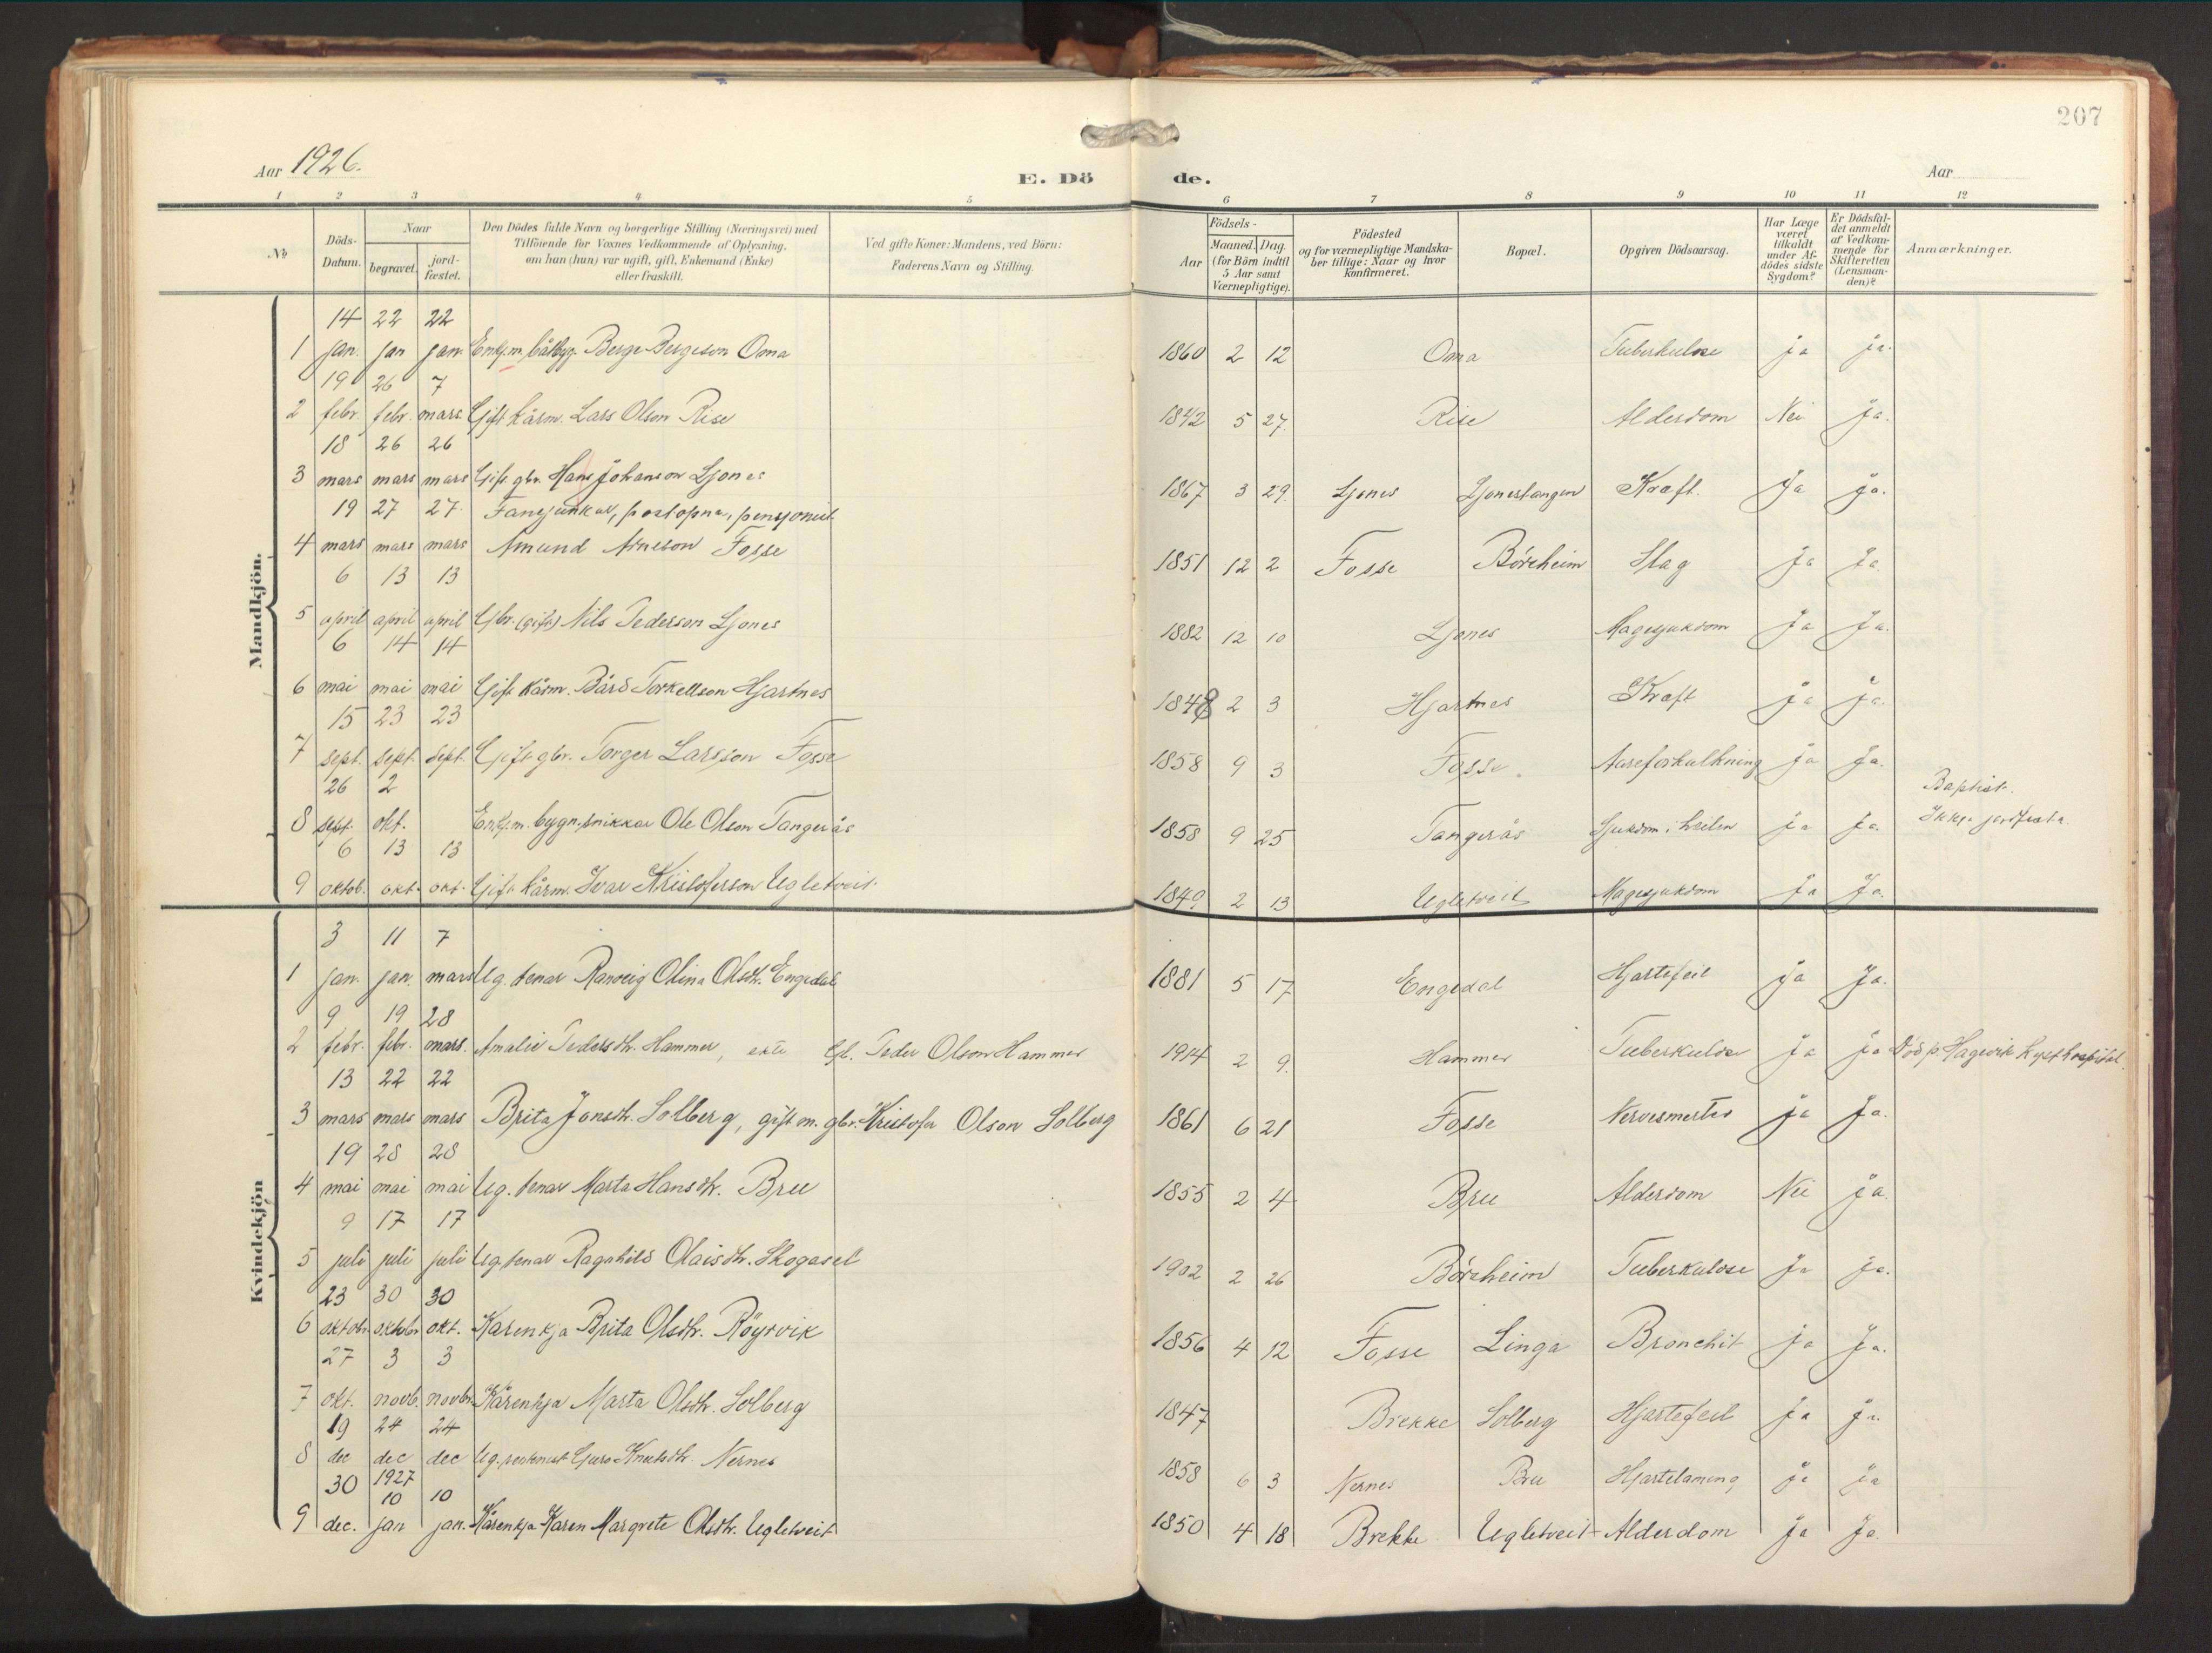 207
Aar 1926.
E. Dö de.
Aar
1 2 3 4 5 6 7 8 9 10 11 12
No
Döds-Datum.
Naar
begravet.
jord-fæstet.
Den Dödes fulde Navn og borgerlige Stilling (Næringsvei) med
Tilföiende for Voxnes Vedkommende af Oplysning,
om han (hun) var ugift, gift, Enkemand (Enke)
eller fraskilt.
Ved gifte Koner: Mandens, ved Börn:
Faderens Navn og Stilling.
Födsels-
Aar
Maaned. Dag.
(for Börn indtil
5 Aar samt
Værnepligtige).
Födested
og for værnepligtige Mandska-
ber tillige: Naar og hvor
konfirmeret.
Bopæl.
Opgiven Dödsaarsag.
Har Læge
været
tilkaldt
under Af-
dödes sidste
Sygdom?
Er Dödsfal-
det anmeldt
af Vedkom-
mende for
Skifteretten
(Lensman-
den)?
Anmærkninger.
Mandkjön.
14 22 22
1 jan. jan jan. Enkjm. båtbygg. Berge Bergeson Oma 1860 2 12 Oma Tuberkulose ja ja.
19 26 7
2 febr. febr. mars. Gift kårm. Lars Olson Rise 1842 5 27. Rise Alderdom Nei Ja.
18 26 26
3 mars mars mars Gift gbr. Hans Johanson Ljones 1867 3 29. Ljones Ljonestangen Kraft. Ja Ja.
19 27 27. Fanejunkar, postopnar, pensjonist
4 mars mars mars Amund Arneson Fosse 1851 12 2 Fosse Börsheim Slag Ja Ja.
6 13 13
5 april april april Gbr. (gift) Nils Pederson Ljones 1882 12 10 Ljones Magesjukdom Ja Ja.
6 14 14
6 mai mai mai Gift kårm. Bård Torkellson Hjartnes 1848 2 3 Hjartnes Kraft Ja Ja.
15 23 23
7 sept. sept. sept. Gift gbr. Torger Larsson Fosse 1858 9 3 Fosse. Aareforkalkning ja Ja.
26 2
8 sept. okt. Enkjm. bygn.snikkar Ole Olson Tangerås 1858 9 25 Tangerås Sjukdom i ja Ja. Baptist.
Ikkje jordfesta.
6 13 13
9 oktob. okt. okt. Gift kårm. Ivar Kristoferson Ugletveit. 1849 2 13 Ugletveit Magesjukdom Ja Ja.
Kvindekjön
3 11 7
1 jan. jan. mars Ug. tenar Ranveig Olina Olsdtr. Engedal 1881 5 17 Engedal Hjartefeil Ja Ja.
9 19 28
2 febr. febr. mars. Amalie Pedersdtr. Hammer, ekte Peder Olson Hammer 1914 2 9. Hammer Tuberkulose Ja ja Död p. Hagevik Kysthospital.
13 22 22
3 mars mars mars Brita Jonsdtr. Solberg, gift m. gbr. Kristofer Olson Solberg 1861 6 21 Fosse Nervesmerter ja Ja.
19 28 28
4 mai mai mai Ug. tenar Marta Hansdtr. Bru 1855 2 4 Bru Alderdom Nei Ja.
9 17 17
5 juli juli juli Ug. tenar Ragnhild Olaisdtr. Skogasel 1902 2 26 Börsheim Tuberkulose Ja ja.
23 30 30
6 oktobr. oktobr. okt. Kårenkja Brita Olsdtr. Röyrvik 1856 4 12 Fosse Linga Bronchit ja Ja.
27 3 3
7 okt. novb. novbr. Kårenkja Marta Olsdtr. Solberg 1847 Brekke Solberg Hjartefeil Ja Ja.
19 24 24
8 dec dec dec Ug. Guro Knutsdtr. Nernes 1858 6 3 Nernes Bru Hjartelaming Ja Ja
30 1927
10 10
9 dec. jan jan. Kårenkja Karen Margrete Olsdtr. Ugletveit 1850 4 18 Brekke Ugletveit Alderdom Ja Ja.